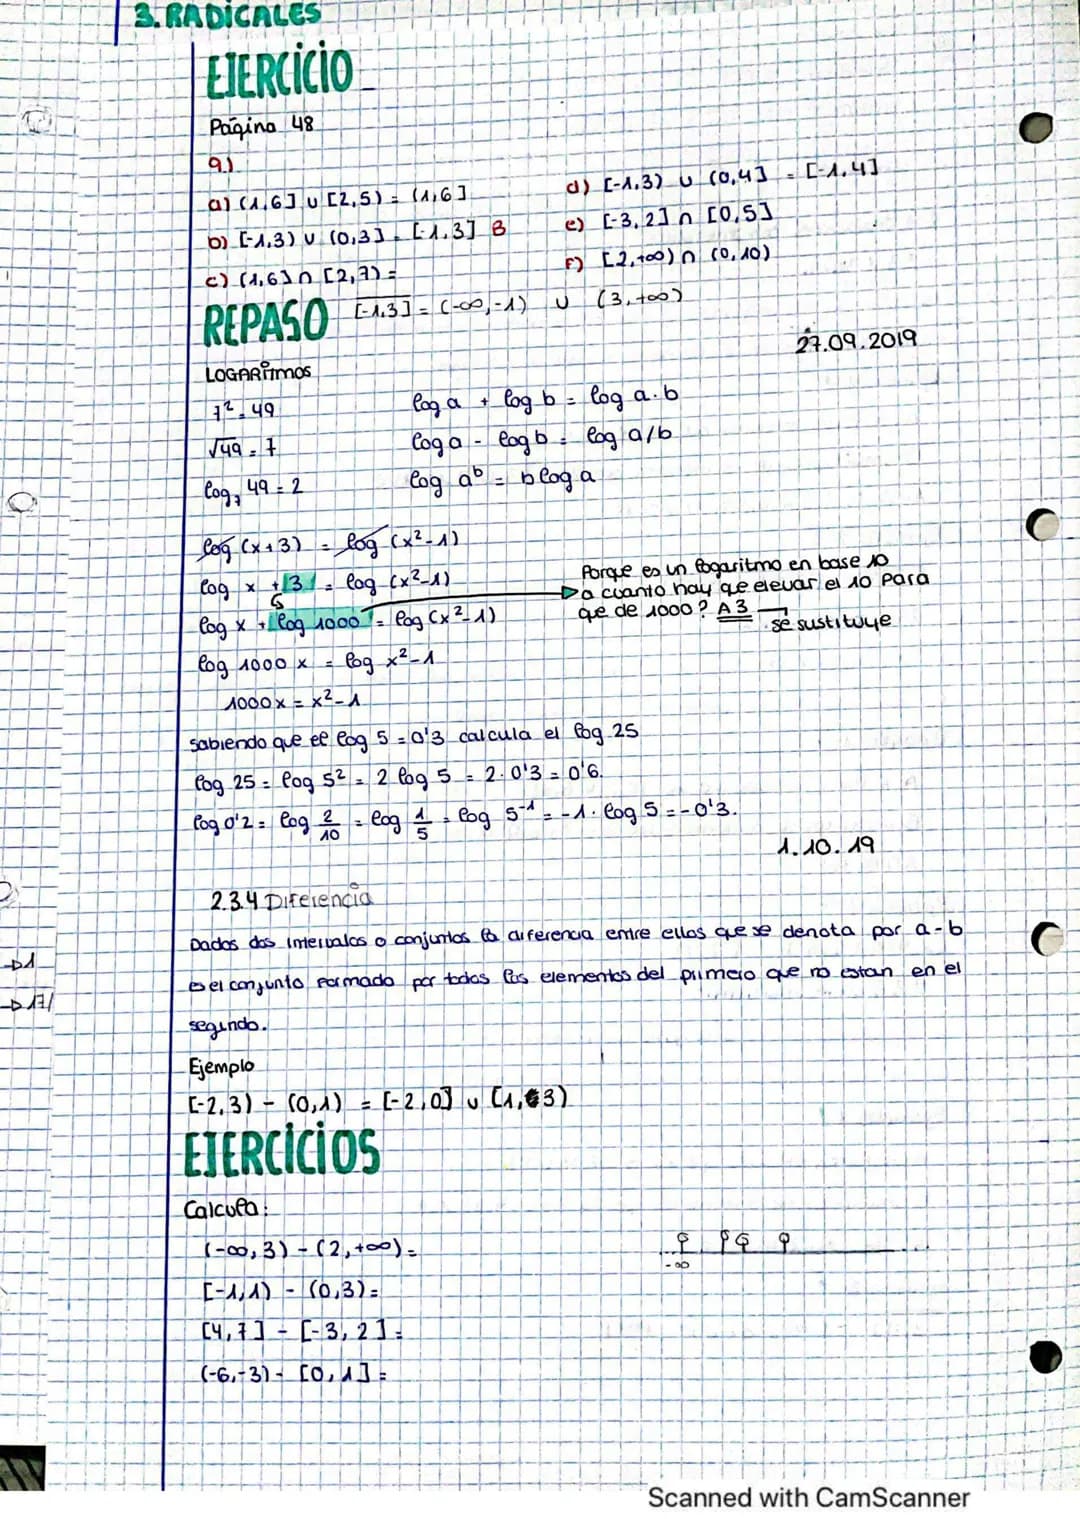 3. RADICALES
EJERCICIO
Página 48
9.)
a) (1,6] ∪ [2,5) = (1,6]
b) [-1,3) ∪ (0,3] = [-1,3] B
c) (1,6] ∩ [2,7) =
d) [-1,3) ∪ (0,4] = [-1,4]
e) [-3,2] ∩ [0,5]
F) [2,+∞) ∩ (0,10)
REPASO
[-1,3] = (-∞,-1) ∪ (3,+∞)
27.09.2019
LOGARITMOS
7² = 49
√49 = 7
log₇ 49 = 2
log a + log b = log a·b
log a - log b = log a/b
log aᵇ = b log a
log (x+3) = log (x²-1)
log x + 3 = log (x²-1)
log x + log 1000 = log (x²-1)
Porque es un logaritmo en base 10
a cuanto hay que elevar el 10 para
que de 1000? A 3
se sustituye
log 1000 x = log x²-1
1000x = x²-1
sabiendo que el log 5 = 0'3 calcula el log 25
log 25 = log 5² = 2 log 5 = 2·0'3 = 0'6.
log 0'2 = log 2/10 = log 1/5 = log 5⁻¹ = -1·log 5 = -0'3.
1.10.19
2.3.4 Diferencia
Dados dos intervalos o conjuntos la diferencia entre ellos que se denota por a-b
es el conjunto formado por todos los elementos del primero que no estan en el
segundo.
Ejemplo
[-2,3) - (0,1) = [-2,0] ∪ [1,3)
EJERCICIOS
Calcula:
(-∞,3) - (2,+∞) =
[-1,1) - (0,3) =
[4,7] - [-3,2] =
(-6,-3) - [0,1] =
-∞
Scanned with CamScanner